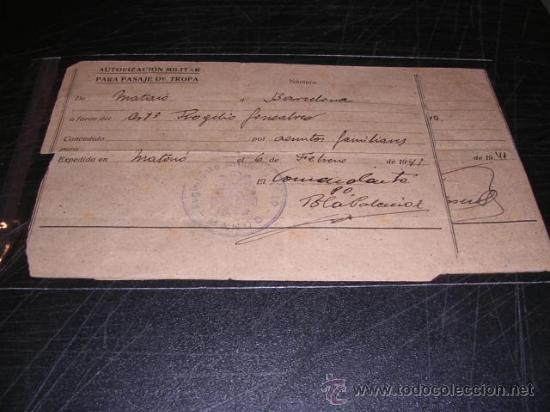 AUTORIZACIÓN MILITAR
PARA PASAJE DE TROPA
Número
De Mataró a Barcelona
a favor del Art.º Rogelio
Concedido por asuntos familiares
para
Expedida en Mataró el 6 de Febrero de 1941
de 1941
El Comandante
P.O.
todocoleccion
www.todocoleccion.net